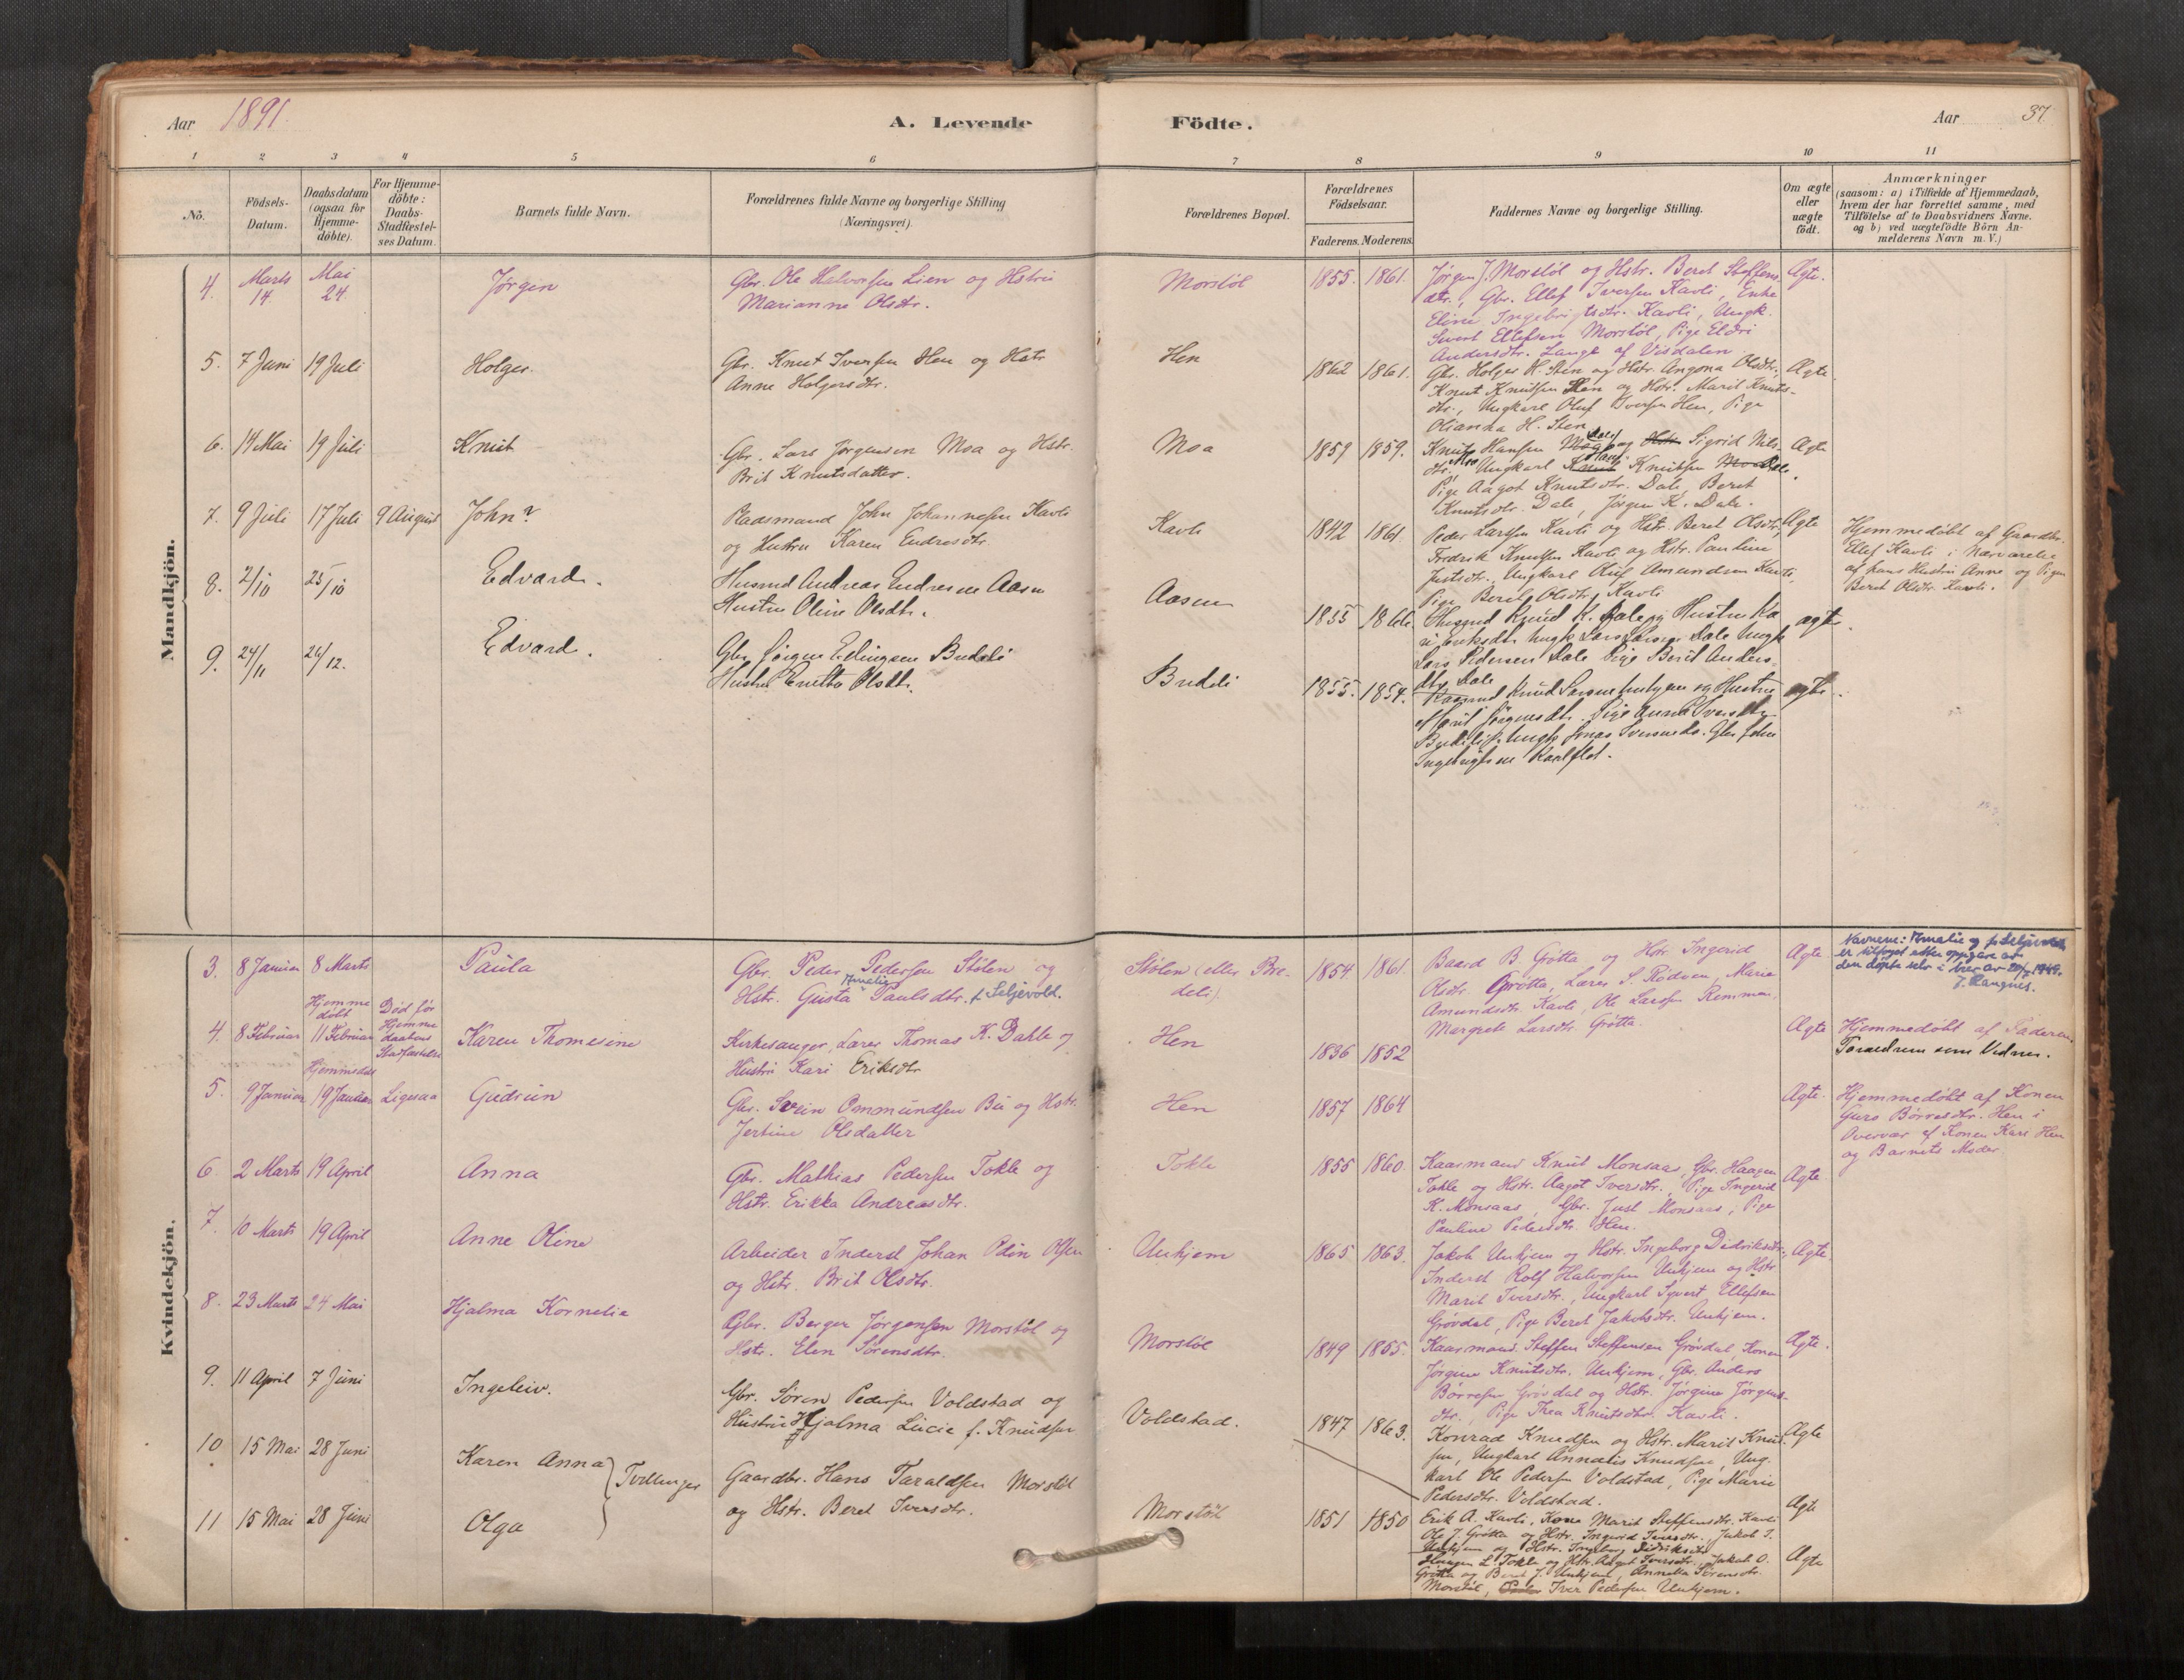 Aar 1891.
A. Levende Födte.
Aar 37
1 2 3 4 5 6 7 8 9 10 11
No.
Födsels-
Datum.
Daabsdatum
(ogsaa for
Hjemme-
döbte).
For Hjemme-
döbte:
Daabs-
Stadfæstel-
ses Datum.
Barnets fulde Navn.
Forældrenes fulde Navne og borgerlige Stilling
(Næringsvei).
Forældrenes Bopæl.
Forældrenes
Födselsaar.
Faderens. Moderens.
Faddernes Navne og borgerlige Stilling.
Om ægte
eller
uægte
födt.
Anmærkninger
(saasom: a) i Tilfælde af Hjemmedaab,
hvem der har forrettet samme, med
Tilföielse af to Daabsvidners Navne.
og b) ved uægtefödte Börn An-
melderens Navn m. V.)
Mandkjön.
4. Marts 14 Mai 24 Jørgen
Gbr. Ole Halvorsen Lien og Hstru
Marianne Olsdtr.
Morstøl 1855. 1861.
Jørgen J. Morstøl og Hstr. Beret Steffens-
dtr., Gbr. Ellef Iversen Kavli, Enke
Eline Ingebrigtsdtr. Kavli, Ungk.
Sivert Ellefsen Morstøl, Pige Eldri
Andersdtr. Lange af Visdalen
Ægte.
5. 7 Juni 19 Juli Holger.
Gbr. Knut Iversen Hen og Hstr
Anne Holgersdtr.
Hen 1862 1861.
Gbr. Holger H. Sten og Hstr. Angona Olsdtr,
Knut Knutsen Hen og Hstr. Marit Knuts-
dtr., Ungkarl Oluf Iversen Hen, Pige
Olianna H. Sten
Ægte.
6. 14 Mai 19 Juli Knut
Gbr. Lars Jørgensen Moa og Hstr.
Brit Knutsdatter.
Moa 1859 1859.
Knut Hansen Dale og Hstr Sigrid Nils
dtr. Moa Ungkarl Hans Knutsen Dale,
Pige Aagot Knutsdtr. Dale, Beret
Knutsdtr. Dale, Jørgen K. Dale.
Ægte
7. 9 Juli 17 Juli 9 August John?
Pladsmand John Johannesen Kavli
og Hustru Karen Endresdtr.
Kavli 1842 1861
Peder Larssen Kavli og Hstr. Beret Olsdtr,
Fredrik Knutsen Kavli og Hstr. Pauline
Justsdtr., Ungkarl Oluf Amundsen Kavli,
Pige Beril Olsdtr. Kavli
Ægte
Hjemmedøbt af Gaardbr.
Ellef Kavli i Nærværelse
af hans Hustru Anne og Pigen
Beret Olsdtr. Kavli.
8. 2/10 25/10 Edvard.
Husmd Andreas Endresen Aasen
Hustru Oline Olsdtr.
Aasen 1855 1866
Husmd Knud K. Dale og Hustru Ka
ri Eriksdtr. Ungk Lars Larsen Dale Ungk
Lars Pedersen Dale Pige Berit Anders
dtr Dale
ægte.
9. 24/11 26/12. Edvard.
Gbr Jørgen Edingsen Bredeli
Hustru Enetta Olsdtr.
Bredeli 1855. 1854.
Kaarmd Knud Larsen Unhjem og Hustru
Marit Jørgensdtr. Pige Anna Iversdtr
Bredeli Ungk Jonas Iversen do. Gbr John
Ingebrigtsen Kavlflot.
ægte.
Kvindekjön.
3. 8 Januar 8 Marts Paula
Gbr. Peder Pedersen Stølen og
Amalie
Hstr. Gusta Paulsdtr. f. Seljevold.
Stølen (eller Bre-
deli)
1854 1861.
Baard B. Grøtta og Hstr Ingerid
Olsdtr Grøtta, Lærer S. Rødven, Marie
Amundsdtr. Kavli, Ole Larssen Remmen
Margrete Larsdtr. Grøtta.
Ægte
Navnene: Amalie og f. Seljevold
er tilføyet etter oppgave av
den døpte selv i brev av 20/5 1949.
J. Haugnes.
4. 8 Februar Hjemme døbt 11 Februar
Død før
Hjemme
daabens
Stadfæstelse
Karen Thomesine
Kirkesanger, Lærer Thomas K. Dahle og
Hustru Kari Eriksdtr
Hen 1836 1852
Ægte
Hjemmedøbt af Faderen.
Forældrene som Vidner.
5. 9 Januar Hjemmedøbt 19 Januar Ligesaa Gudrun
Gbr. Svein Ommundsen Bu og Hstr.
Jertine Olsdatter
Hen 1857 1864
Ægte.
Hjemmedøbt af Konen
Guro Børresdtr. Hen i
Overvær af Konen Kari Hen
og Barnets Moder
6. 2 Marts 19 April Anna
Gbr. Mathias Pedersen Tokle og
Hstr. Erikka Andreasdtr.
Tokle 1855 1860.
Kaarmand Knut Monsaas, Gbr. Haagen
Tokle og Hstr. Aagot Iversdtr., Pige Ingerid
K. Monsaas, Gbr. Just Monsaas, Pige
Pauline Pedersdtr. Hen.
Ægte.
7. 10 Marts 19 April Anne Oline
Arbeider Inderst Johan Odin Olsen
og Hstr. Brit Olsdtr.
Unhjem 1865 1863.
Jakob Unhjem og Hstr. Ingeborg Didriksdtr.,
Inderst Rolf Halvorsen Unhjem og Hstr
Marit Iversdtr., Ungkarl Syvert Ellefsen
Grøvdal, Pige Beret Jakobsdtr. Unhjem.
Ægte.
8. 23 Marts 24 Mai Hjalma Kornelia
Gbr. Berger Jørgensen Morstøl og
Hstr. Elen Sørensdtr.
Morstøl 1849 1855.
Kaarmand Steffen Steffensen Grøvdal, Konen
Jørgine Knutsdtr. Unhjem, Gbr. Anders
Børresen Grøvdal og Hstr. Jørgine Jørgens-
dtr., Pige Thea Knutsdtr. Kavli.
Ægte.
9. 11 April 7 Juni Ingeleiv.
Gbr. Søren Pedersen Voldstad og
Hustru Hjalma Lucie f. Knudsen
Voldstad. 1847 1863.
Konrad Knudsen og Hstr. Marit Knud-
sen, Ungkarl Annælis Knudsen, Ung-
karl Ole Pedersen Voldstad, Pige Marie
Pedersdtr. Voldstad.
Ægte
10. 15 Mai 28 Juni Karen Anna
11 15 Mai 28 Juni Olga
Tvillinger
Gaardbr. Hans Taraldsen Morstøl
og Hstr. Beret Iversdtr.
Morstøl 1851 1850
Erik A. Kavli, Kone Marit Steffensdtr. Kavli
Ole J. Grøtta og Hstr. Ingerid Iversdtr., Jakob I.
Unhjem og Hstr. Ingeborg Didriksdtr
Haagen L. Tokle og Hstr. Aagot Iversdtr., Jakob O.
Grøtta og Beret J. Unhjem, Annette Sørensdtr.
Morstøl, Iver Pedersen Unhjem.
Ægte
Ægte